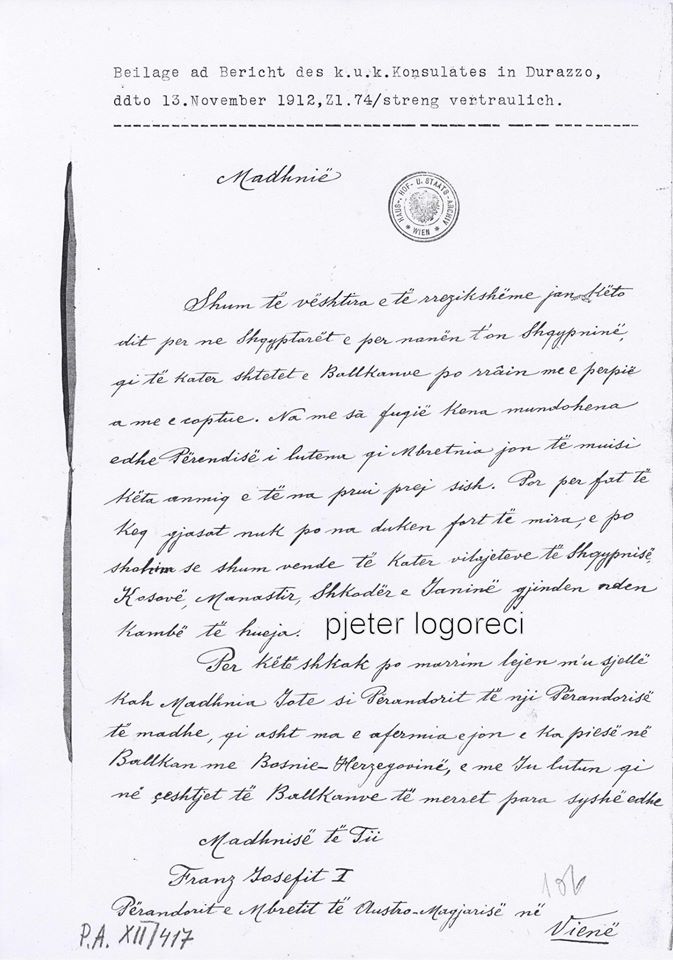 Beilage ad Bericht des k.u.k.Konsulates in Durazzo,
ddto 13.November 1912,Zl.74/streng vertraulich.
Madhnië
HAUS-, HOF- U. STAATS-ARCHIV
* WIEN *
Shum të vështira e të rrezikshëme jan këto
dit per ne Shqyptarët e per nanën t'on Shqypninë,
qi të kater shtetet e Ballkanve po rrâin me e perpië
a me e coptue. Na me sà fuqië kena mundohena
edhe Përendisë i lutena qi Mbretnia jon të muisi
këta anmiq e të na prui prej sish. Por per fat të
keq gjasat nuk po na duken fort të mira, e po
shohim se shum vende të kater vilajeteve të Shqypnisë,
Kosovë, Manastir, Shkodër e Janinë gjinden nden
kambë të hueja. pjeter logoreci
Per këtë shkak po marrim lejen m'u sjellë
kah Madhnia Jote si Përandorit të nji Përandorisë
të madhe, qi asht ma e afermia e jon e ka piesë në
Ballkan me Bosnie-Herzegovinë, e me Ju lutun qi
në çeshtjet të Ballkanve të merret para syshë edhe
Madhnisë të Tii
Franz Josefit I
Përandorit e Mbretit të Austro-Magjarisë në
Vienë
106
P.A. XII/417